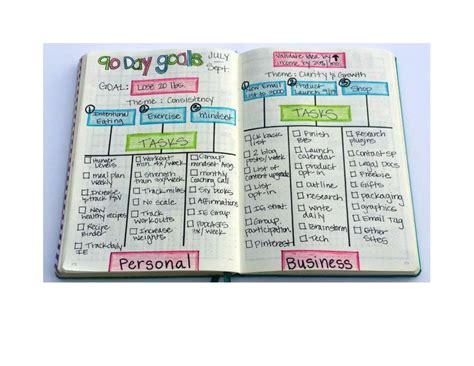 90 Day goals
JULY
Sept.
GOAL: Lose 20 lbs.
Theme: Consistency
① Intentional
Eating
② Exercise
③ Mindset
TASKS
Hunger
Levels
meal plan
weekly
Increase
New
healthy recipes
Recipe
Binder
Track daily
IE
Workout
Strength
Track miles
No scale
Track
workouts
Increase
weights
Group
mindset
monthly
coaching call
Affirmations
IE Group
Podcasts
Personal
Validate idea by
income by
Theme: Clarity & Growth
① New Email
List to 2000
② Product
Launch
③ Shop
TASKS
back
list
2 blog
posts/week
List of
content upgrade
List
opt-in
Group
participation
Pinterest
Finish
Launch
calendar
product
opt-in
Outline
research
write
daily
Brainstorm
Tech
Research
plugins
Contact SP
Legal Docs
Freebie
Gifts
packaging
graphics
Email Tag
Other
Sites
Business